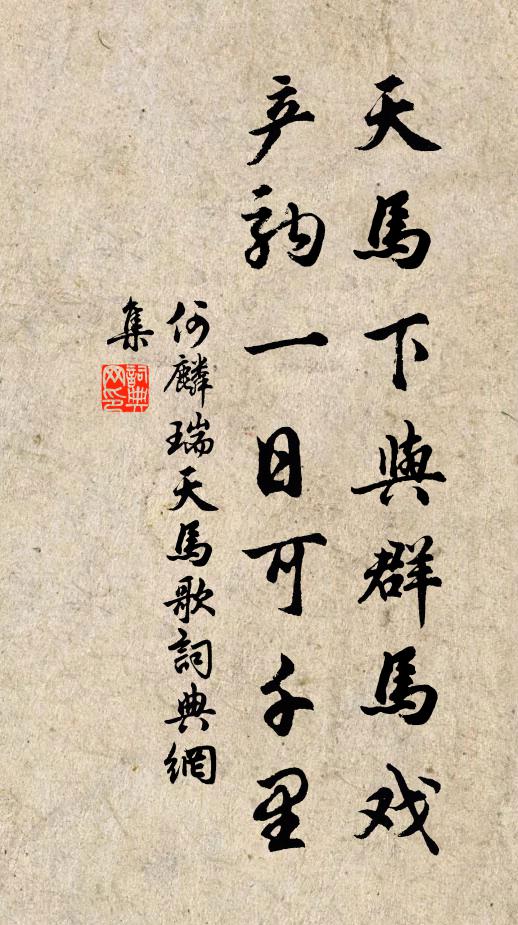 天馬下與群馬戏
产駒一日可千里
何麟瑞天馬歌詞典網
集
詞典网印